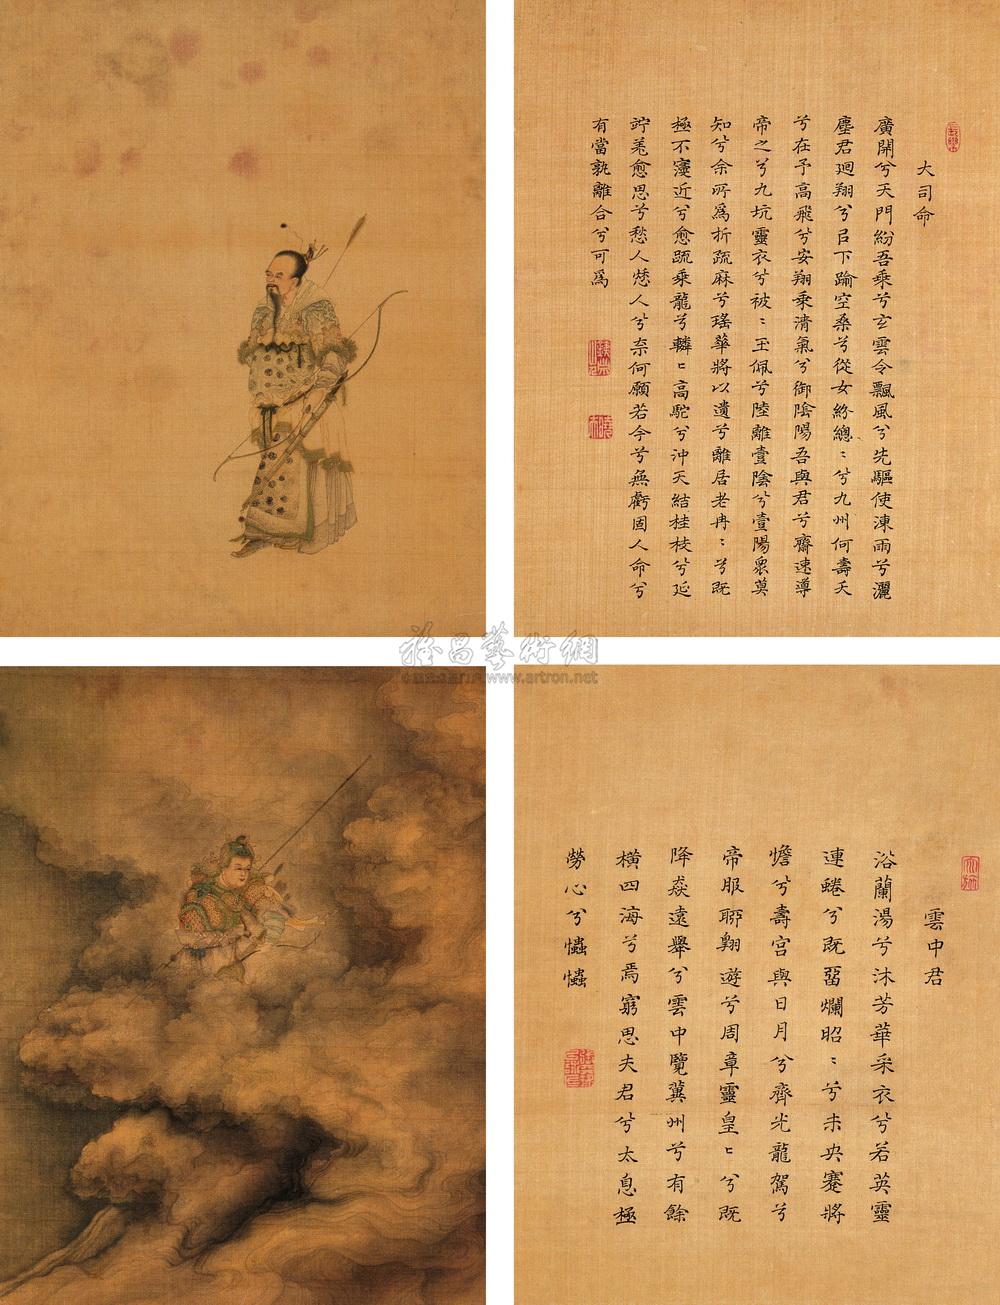 大司命
廣開兮天門紛吾乘兮玄雲令飄風兮先驅使涷雨兮灑
塵君迴翔兮㠯下踰空桑兮從女紛總〻兮九州何壽夭
兮在予高飛兮安翔乘清氣兮御陰陽吾與君兮齋速導
帝之兮九坑靈衣兮被〻玉佩兮陸離壹陰兮壹陽眾莫
知兮余所為折疏麻兮瑤華將以遺兮離居老冉〻兮既
極不寖近兮愈疏乘龍兮轔〻高駝兮沖天結桂枝兮延
竚羌愈思兮愁人愁人兮奈何願若今兮無虧固人命兮
有當孰離合兮可為
雲中君
浴蘭湯兮沐芳華采衣兮若英靈
連蜷兮既留爛昭〻兮未央蹇將
憺兮壽宮與日月兮齊光龍駕兮
帝服聊翱遊兮周章靈皇〻兮既
降猋遠舉兮雲中覽冀州兮有餘
橫四海兮焉窮思夫君兮太息極
勞心兮爞爞
雅昌藝術網
www.artron.net